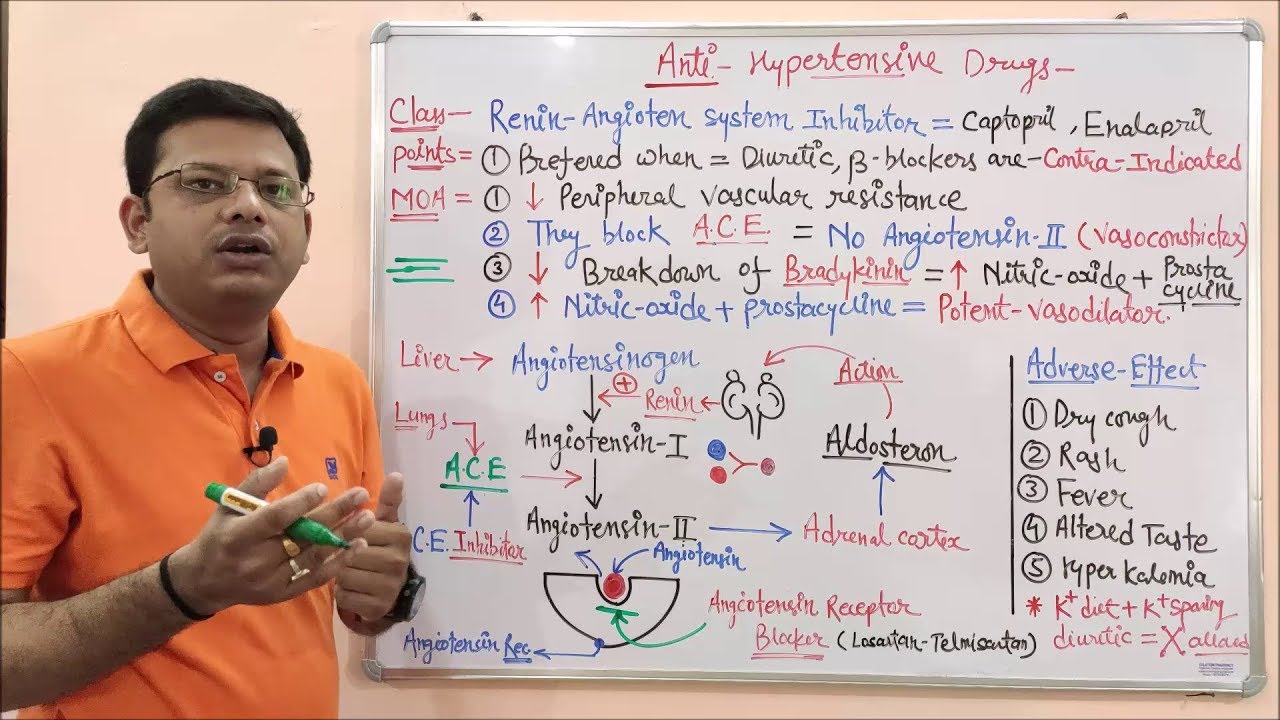 Anti- Hypertensive Drugs-
Class- Renin-Angioten system Inhibitor = Captopril, Enalapril
points= ① Brefered when = Diuretic, β-blockers are-Contra-Indicated
MOA = ① ↓ Peripheral vascular resistance
② They block A.C.E. = No Angiotensin-II (vasoconstrictor)
③ ↓ Breakdown of Bradykinin = ↑ Nitric-oxide + Prosta cycline
④ ↑ Nitric-oxide + prostacycline = Potent-vasodilator.
Liver → Angiotensinogen
+ Renin
Action
Lungs
Angiotensin-I
A.C.E
Aldosteron
C.E. Inhibitor
Angiotensin-II → Adrenal cortex
Angiotensin
Angiotensin Receptor
Blocker (Losartan-Telmisartan)
Angiotensin Rec
Adverse-Effect
① Dry cough
② Rash
③ Fever
④ Altered Taste
⑤ Hyper Kalemia
* K+ diet + K+ sparing
diuretic = X allowed